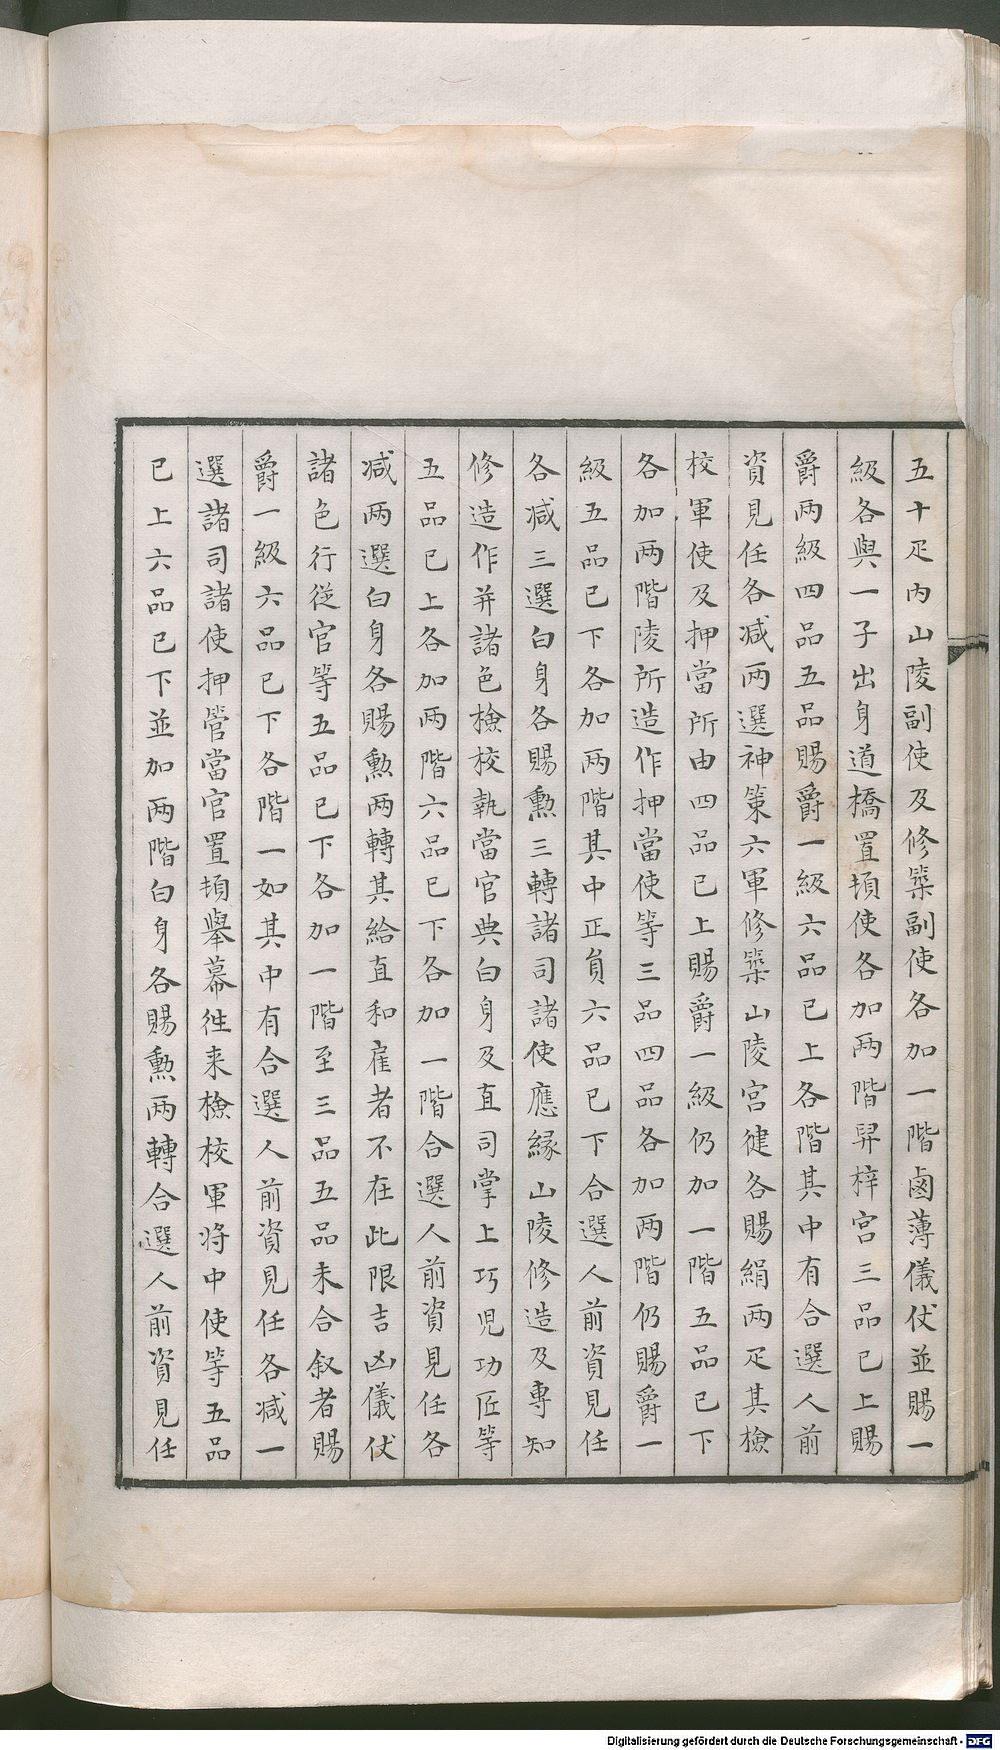 五十疋內山陵副使及修築副使各加一階鹵薄儀仗並賜一
級各與一子出身道橋置頓使各加兩階舁梓宮三品已上賜
爵兩級四品五品賜爵一級六品已上各階其中有合選人前
資見任各減兩選神策六軍修築山陵宮健各賜絹兩疋其檢
校軍使及押當所由四品已上賜爵一級仍加一階五品已下
各加兩階陵所造作押當使等三品四品各加兩階仍賜爵一
級五品已下各加兩階其中正員六品已下合選人前資見任
各減三選白身各賜勲三轉諸司諸使應緣山陵修造及專知
修造作并諸色檢校執當官典白身及直司掌上巧児功匠等
五品已上各加兩階六品已下各加一階合選人前資見任各
減兩選白身各賜勲兩轉其給直和雇者不在此限吉凶儀仗
諸色行從官等五品已下各加一階至三品五品未合叙者賜
爵一級六品已下各階一如其中有合選人前資見任各減一
選諸司諸使押管當官置頓舉幕徃来檢校軍将中使等五品
已上六品已下並加兩階白身各賜勲兩轉合選人前資見任
Digitalisierung gefördert durch die Deutsche Forschungsgemeinschaft - DFG